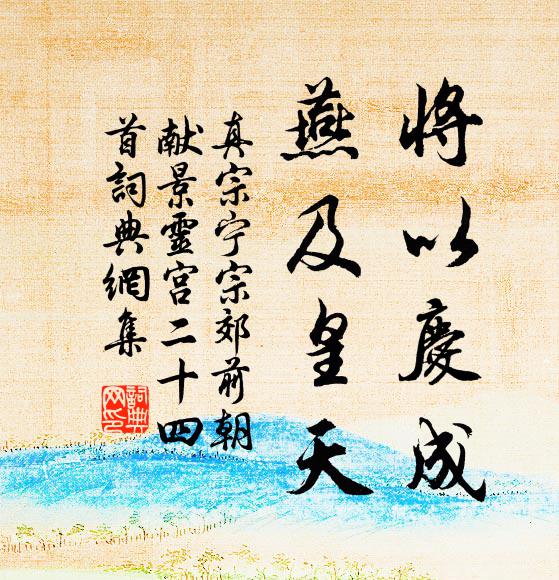 將以慶成
燕及皇天
真宗宁宗郊前朝
献景靈宮二十四
首詞典網集
詞典
网印